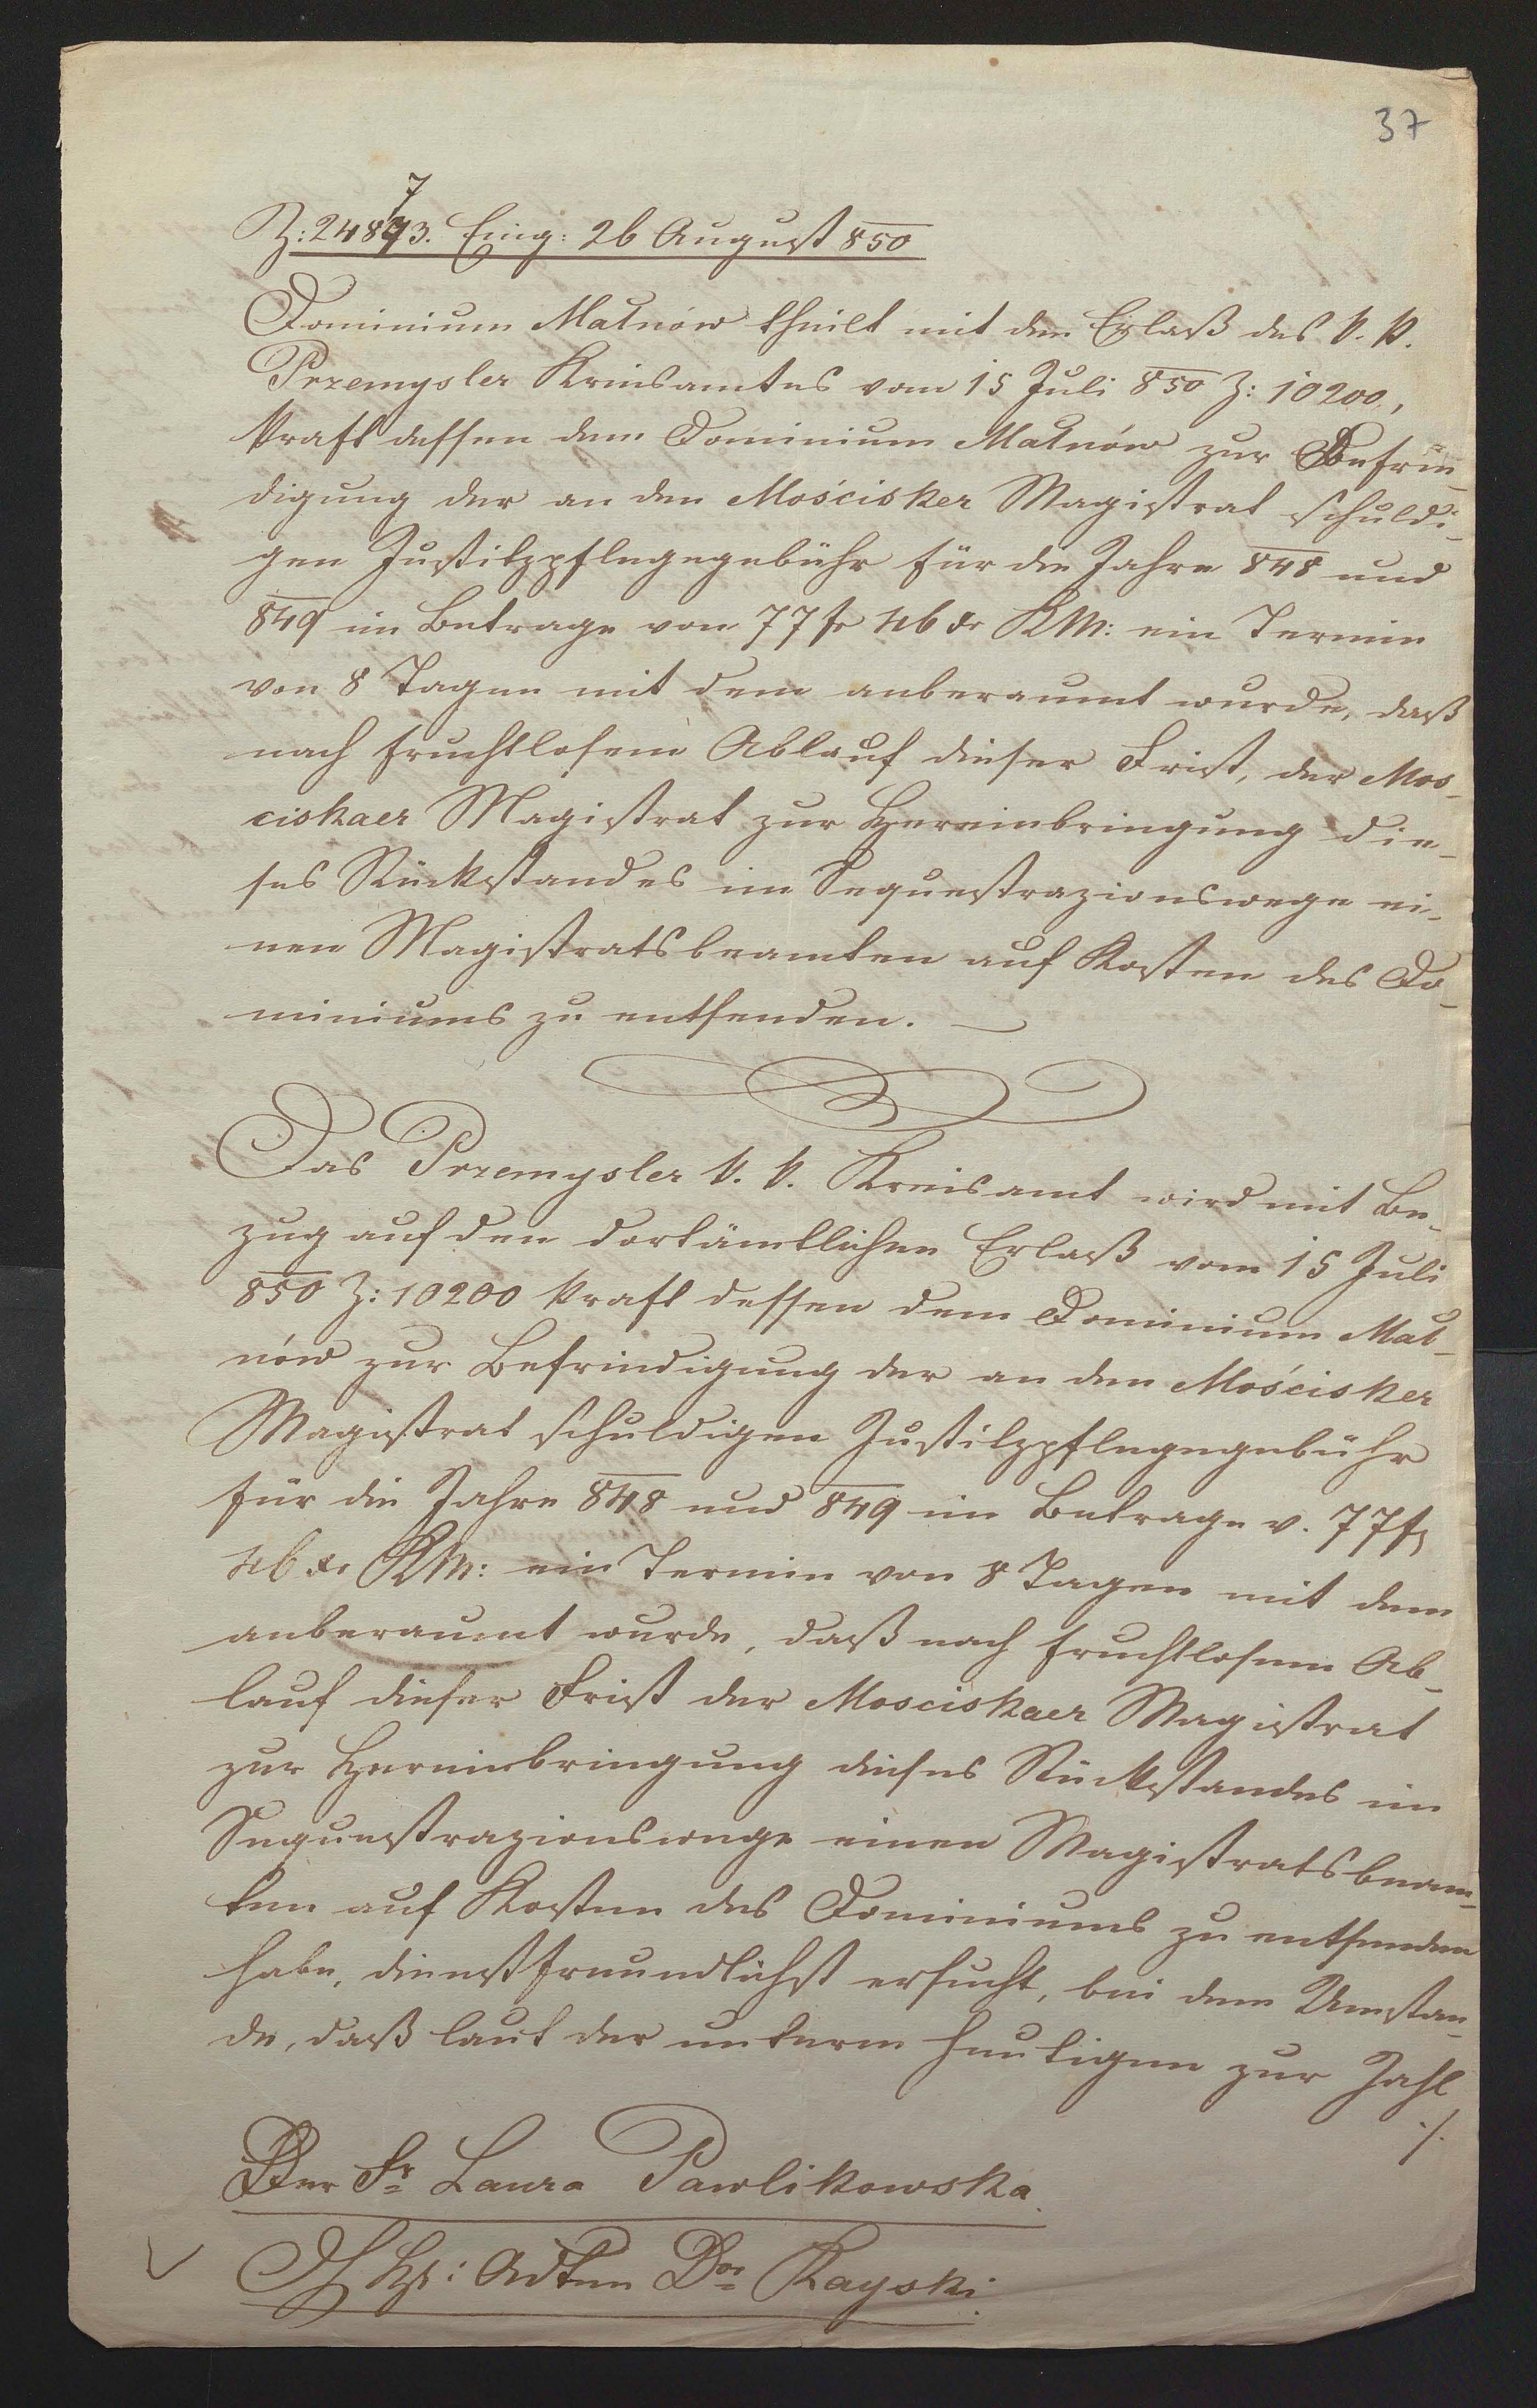 37
7
Z: 24873. Eing: 26 August 850
Dominium Małnów theilt mit den Erlaß des k. k.
Przemysler Kreisamtes vom 15 Juli 850 Z: 10200,
kraft dessen dem Dominium Małnów zur Befrie-
digung der an den Mościsker Magistrat schuldi-
gen Justitzpflegegebühr für die Jahre 848 und
849 im Betrage von 77 fr 46 xr KM: ein Termin
von 8 Tagen mit dem anberaumt wurde, daß
nach fruchtlosem Ablauf dieser Frist, der Mos-
ciskaer Magistrat zur Hereinbringung die-
ses Rückstandes im Sequestrazionswege ei-
nen Magistratsbeamten auf Kosten des Do-
miniums zu entsenden. —
Das Przemysler k. k. Kreisamt wird mit Be-
zug auf den dortämtlichen Erlaß vom 15 Juli
850 Z: 10200 kraft dessen dem Dominium Mał-
nów zur Befriedigung der an den Mościsker
Magistrat schuldigen Justitzpflegegebühr
für die Jahre 848 und 849 im Betrage v. 77 fr
46 xr KM: ein Termin von 8 Tagen mit dem
anberaumt wurde, daß nach fruchtlosem Ab-
lauf dieser Frist der Mosciskaer Magistrat
zur Hereinbringung dieses Rückstandes im
Sequestrazionswege einen Magistratsbeam-
ten auf Kosten des Dominiums zu entsenden
habe, dienstfreundlichst ersucht, bei dem Umstan-
de, daß laut der unterm heutigen zur Zahl
./.
Der Fr Laura Pawlikowska
Adten Dor Kayski